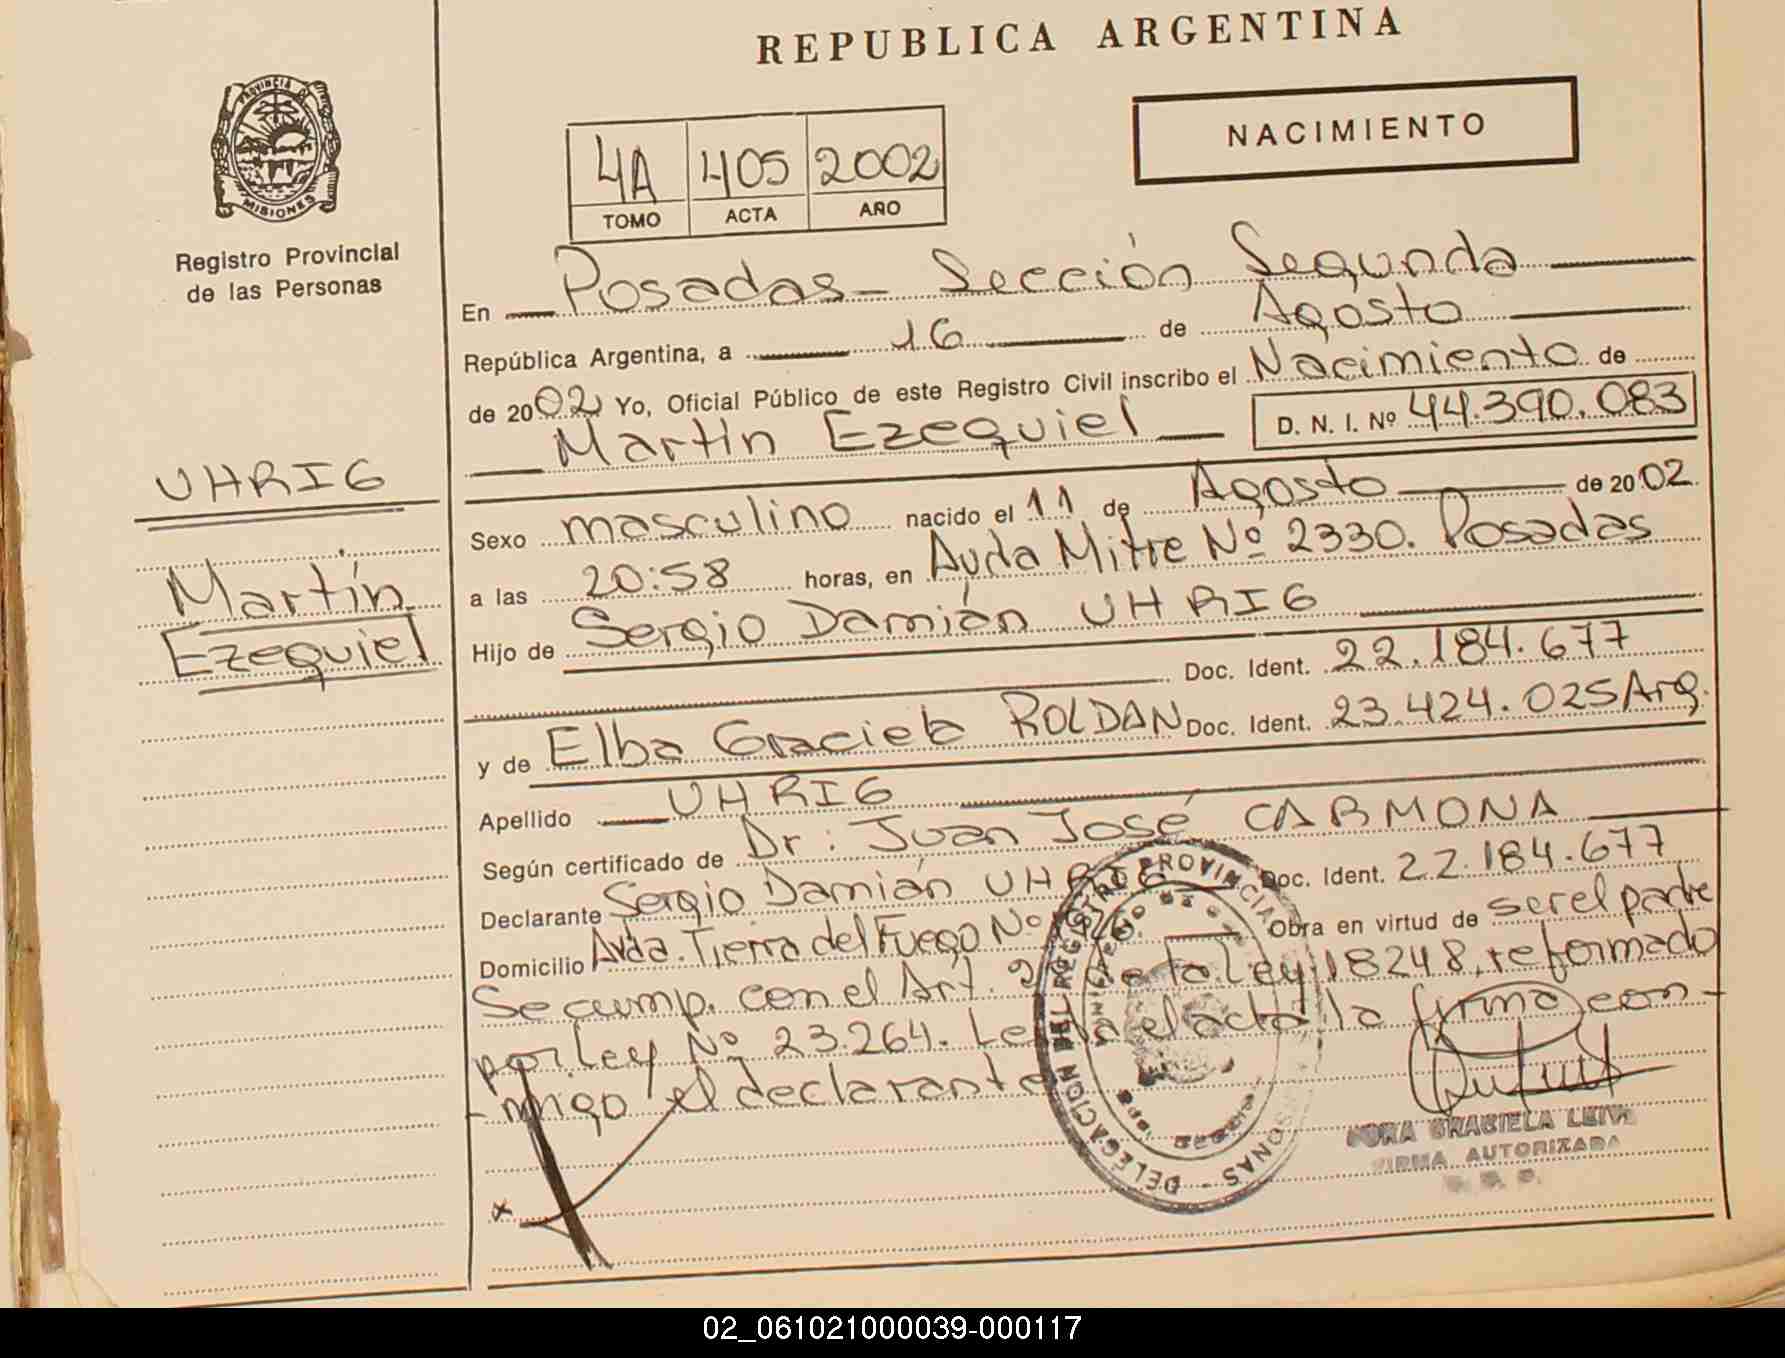 REPUBLICA ARGENTINA
PROVINCIA DE
MISIONES
Registro Provincial
de las Personas
NACIMIENTO
4A 405 2002
TOMO ACTA AÑO
En Posadas - Sección Segunda
República Argentina, a 16 de Agosto
de 2002 Yo, Oficial Público de este Registro Civil inscribo el Nacimiento de
Martín Ezequiel D. N. I. Nº 44.390.083
UHRIG
Martín
Ezequiel
Sexo masculino nacido el 11 de Agosto de 2002
a las 20:58 horas, en Avda Mitre Nº 2330. Posadas
Hijo de Sergio Damián UHRIG
Doc. Ident. 22.184.677
y de Elba Graciela ROLDAN Doc. Ident. 23.424.025 Arg.
Apellido UHRIG
Según certificado de Dr: Juan José CARMONA
Declarante Sergio Damián UHRIG Doc. Ident. 22.184.677
Domicilio Avda. Tierra del Fuego Nº Obra en virtud de ser el padre
Se cump. con el Art. 2 de la Ley 18248, reformado
por Ley Nº 23.264. Leída el acta la firma con-
-migo el declarante
DELEGACION DEL REGISTRO PROVINCIAL PERSONAS -
GRACIELA LEIVA
FIRMA AUTORIZADA
02_061021000039-000117